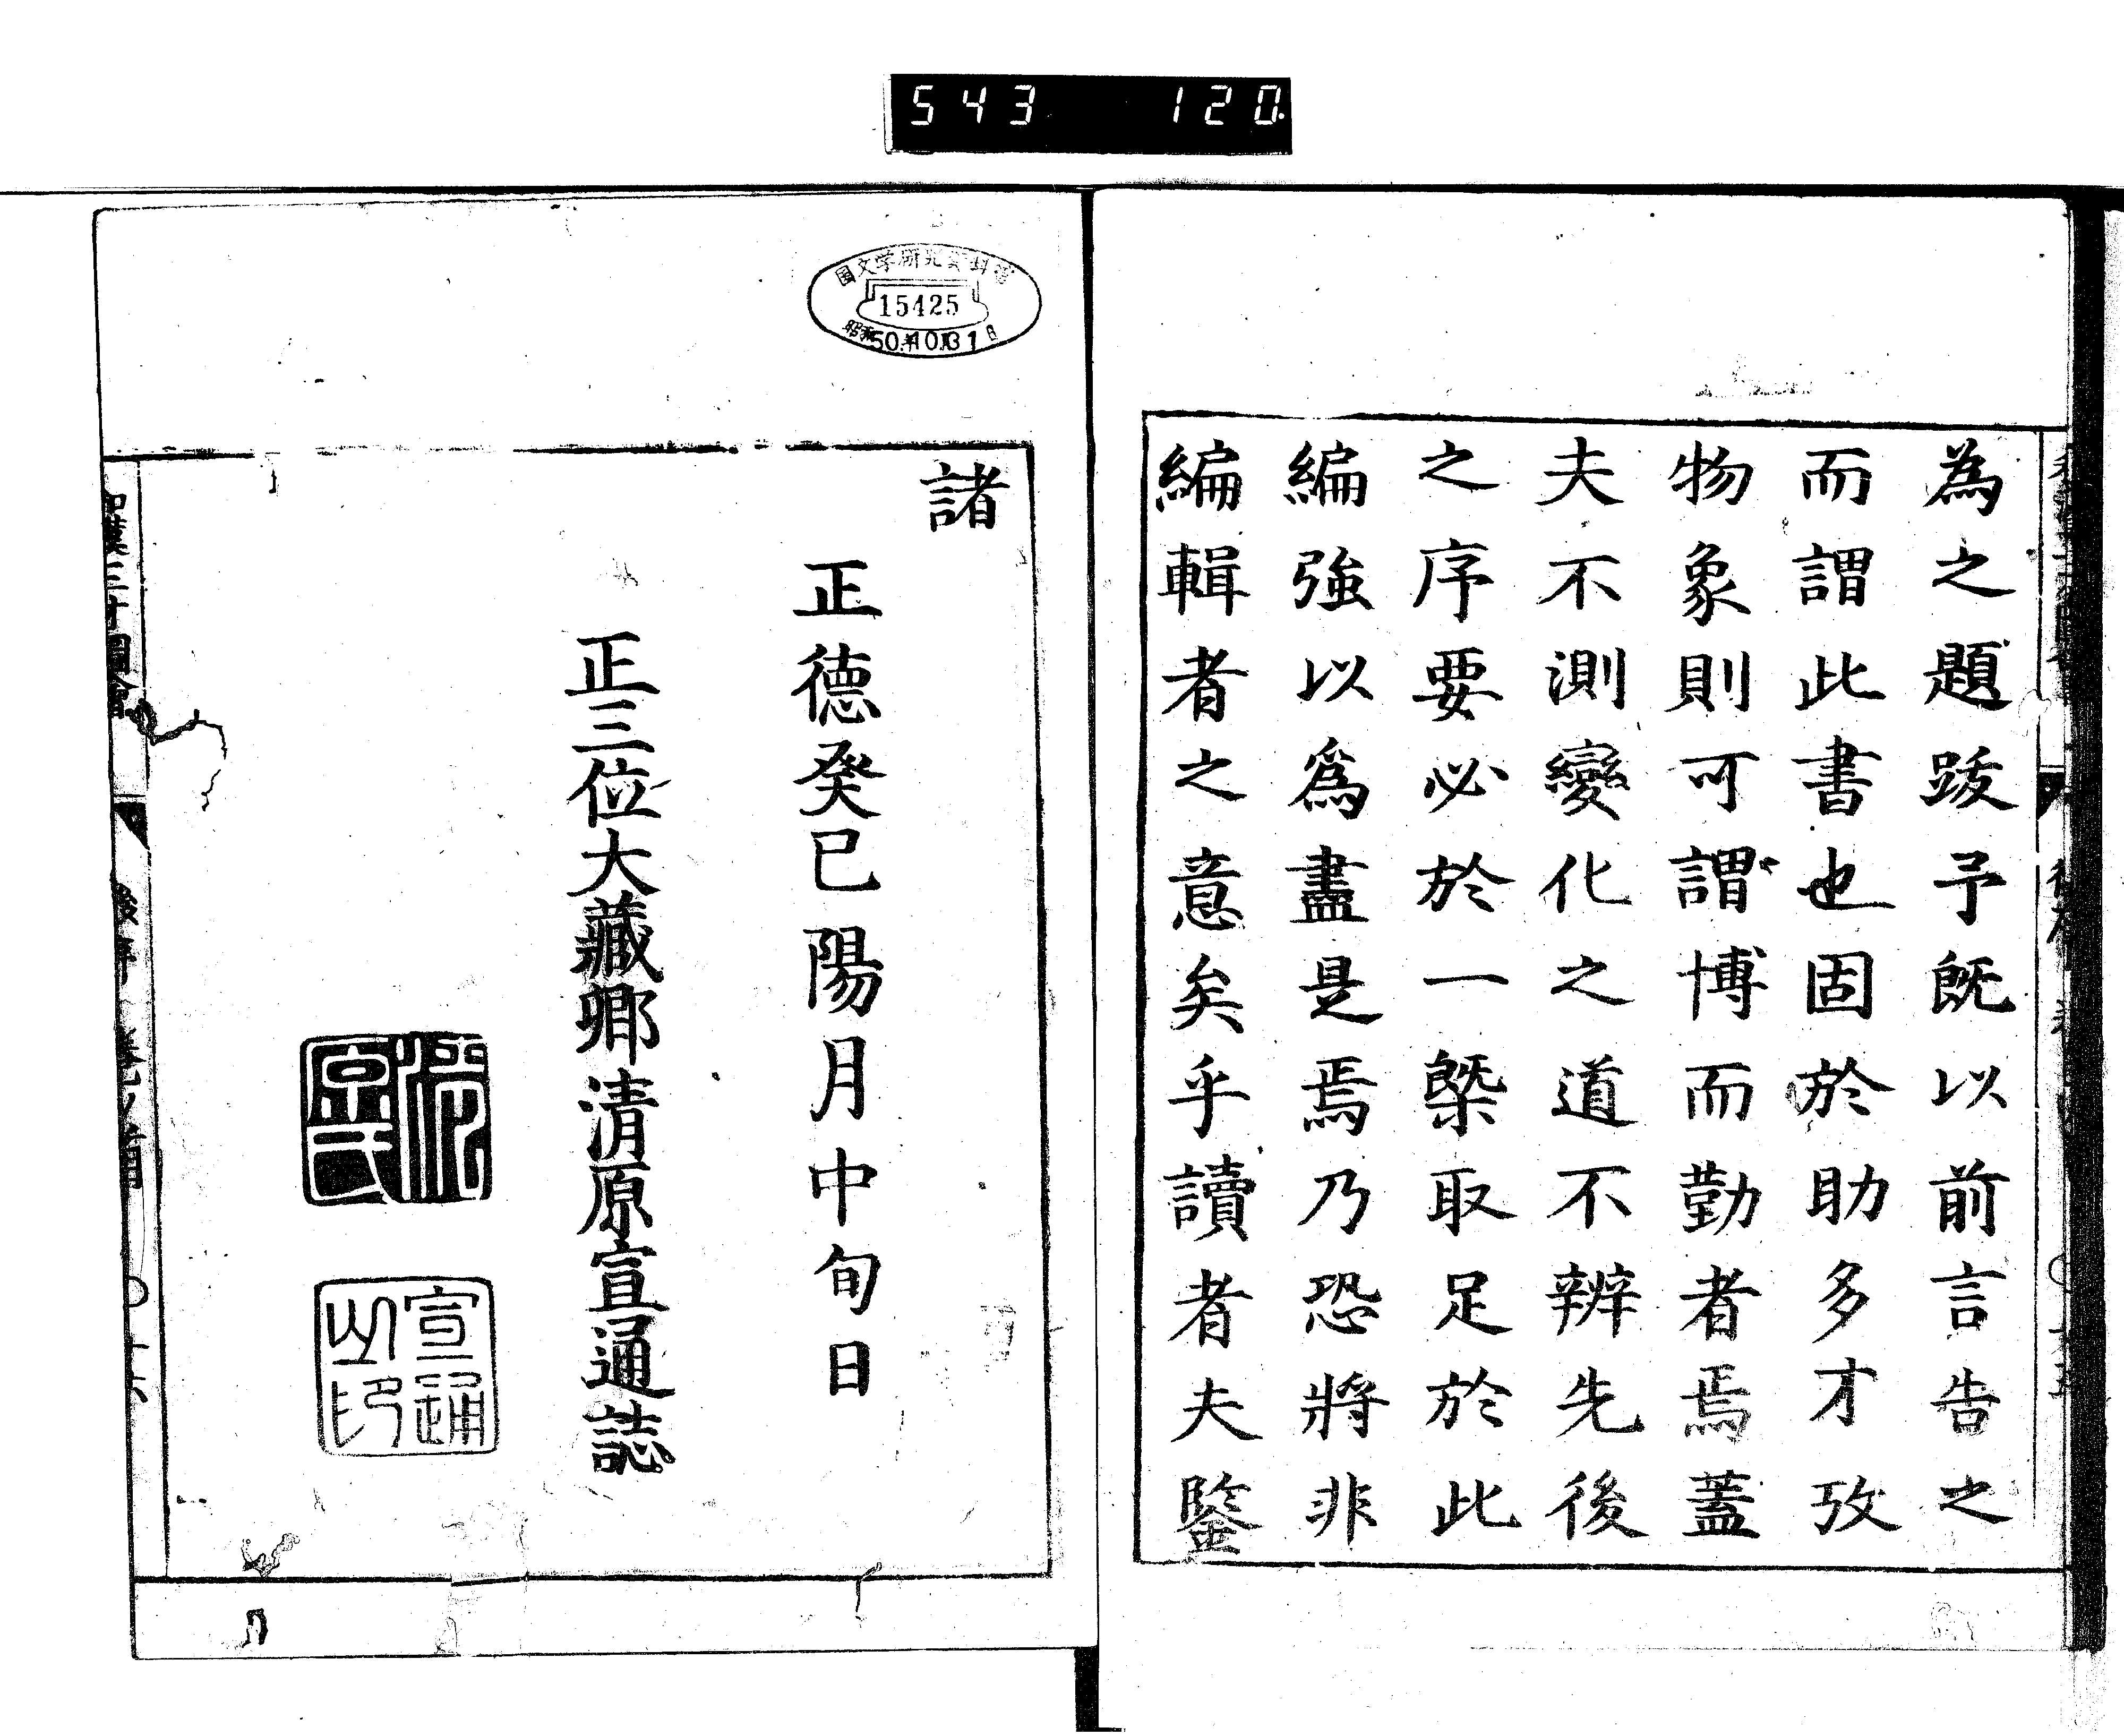 543 120
為之題跋予既以前言告之
而謂此書也固於助多才攷
物象則可謂博而勤者焉蓋
夫不測變化之道不辨先後
之序要必於一槩取足於此
編強以爲盡是焉乃恐將非
編輯者之意矣乎讀者夫鑒
諸
正德癸巳陽月中旬日
正三位大藏卿清原宣通誌
宣通
之印
国文学研究資料館
15425
昭和50.年10.月31日
和漢三才圖會
後序